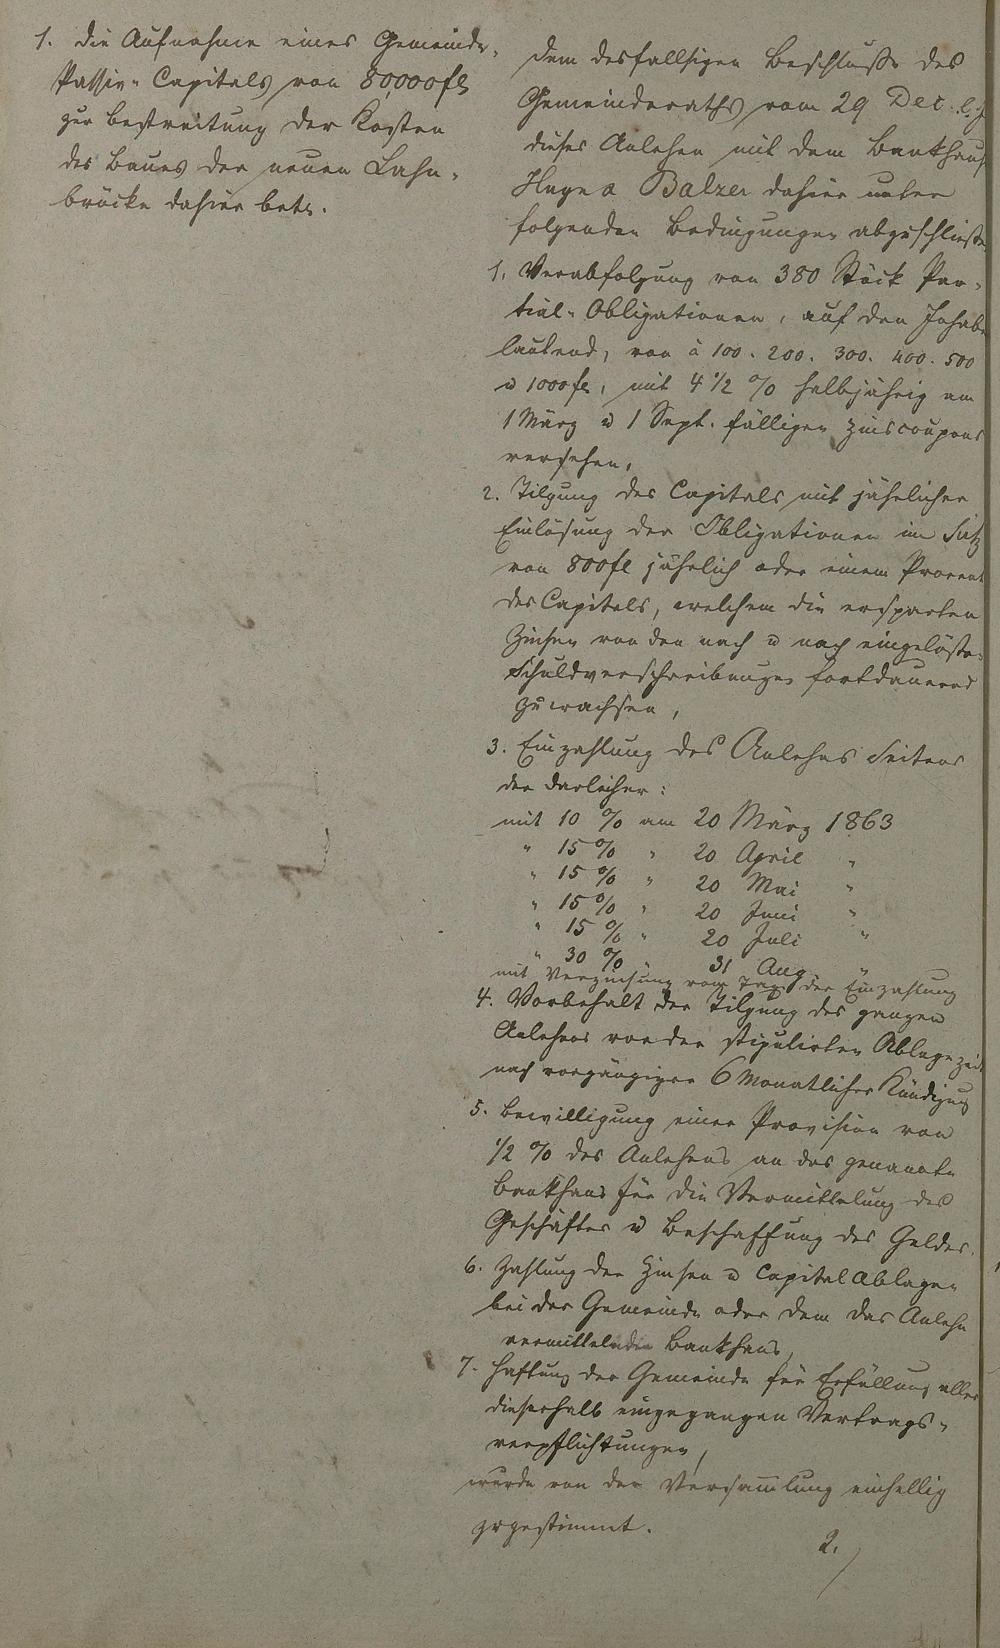 1. die Aufnahme eines Gemeinde-
Passiv-Capitals von 80,000 fl
zur Bestreitung der Kosten
des Baues der neuen Lahn-
brücke dahier betr.
dem desfallsigen Beschluße des
Gemeinderaths vom 29 Dec. l. J.
dieses Anlehen mit dem Bankhause
Balzer dahier unter
folgenden Bedingungen abzuschließen
1. Verabfolgung von 380 Stück Par-
tial-Obligationen, auf den Inhaber
lautend, von à 100. 200. 300. 400. 500
u 1000 fl, mit 4 1/2 % halbjährig am
1 März u 1 Sept. fälligen Zinscoupons
versehen,
2. Tilgung des Capitals mit jährlicher
Einlösung der Obligationen im Satz
von 800 fl jährlich oder einem Procent
des Capitals, welchem die ersparten
Zinsen von den nach u nach eingelösten
Schuldverschreibungen fortdauernd
zuwachsen,
3. Einzahlung des Anlehns Seitens
der Darleiher:
mit 10 % am 20 März 1863
" 15 % " 20 April "
" 15 % " 20 Mai "
" 15 % " 20 Juni "
" 15 % " 20 Juli "
" 30 % " 31 Aug. "
mit Verzinsung vom Tag der Einzahlung
4. Vorbehalt der Tilgung des ganzen
Anlehens vor der stipulirten Ablagezeit
nach vorgängiger 6 Monatlicher Kündigung
5. Bewilligung einer Provision von
1/2 % des Anlehens an das genannte
Bankhaus für die Vermittelung des
Geschäftes u Beschaffung des Geldes.
6. Zahlung der Zinsen u Capital Ablagen
bei der Gemeinde oder dem das Anlehn
vermittelnden Bankhaus,
7. Haftung der Gemeinde für Erfüllung aller
dieserhalb eingegangen Vertrags-
verpflichtungen,
wurde von der Versammlung einhellig
zugestimmt.
2.